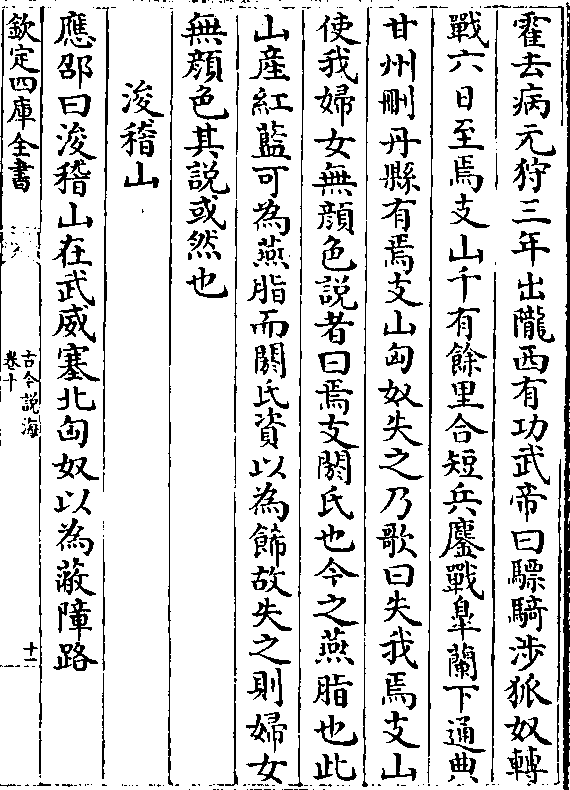 霍去病元狩三年出隴西有功武帝曰驃騎涉狐奴轉
戰六日至焉支山千有餘里合短兵鏖戰臯蘭下通典
甘州刪丹縣有焉支山匈奴失之乃歌曰失我焉支山
使我婦女無顔色説者曰焉支閼氏也今之燕脂也此
山産紅藍可為燕脂而閼氏資以為飾故失之則婦女
無顔色其説或然也
浚稽山
應邵曰浚稽山在武威塞北匈奴以為蔽障路
欽定四庫全書
古今説海
卷十
十一